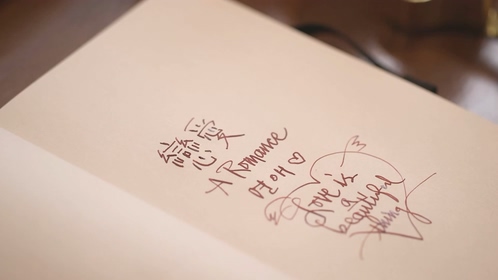 戀愛
A Romance
연애♡
Love is
a
beautiful
thing